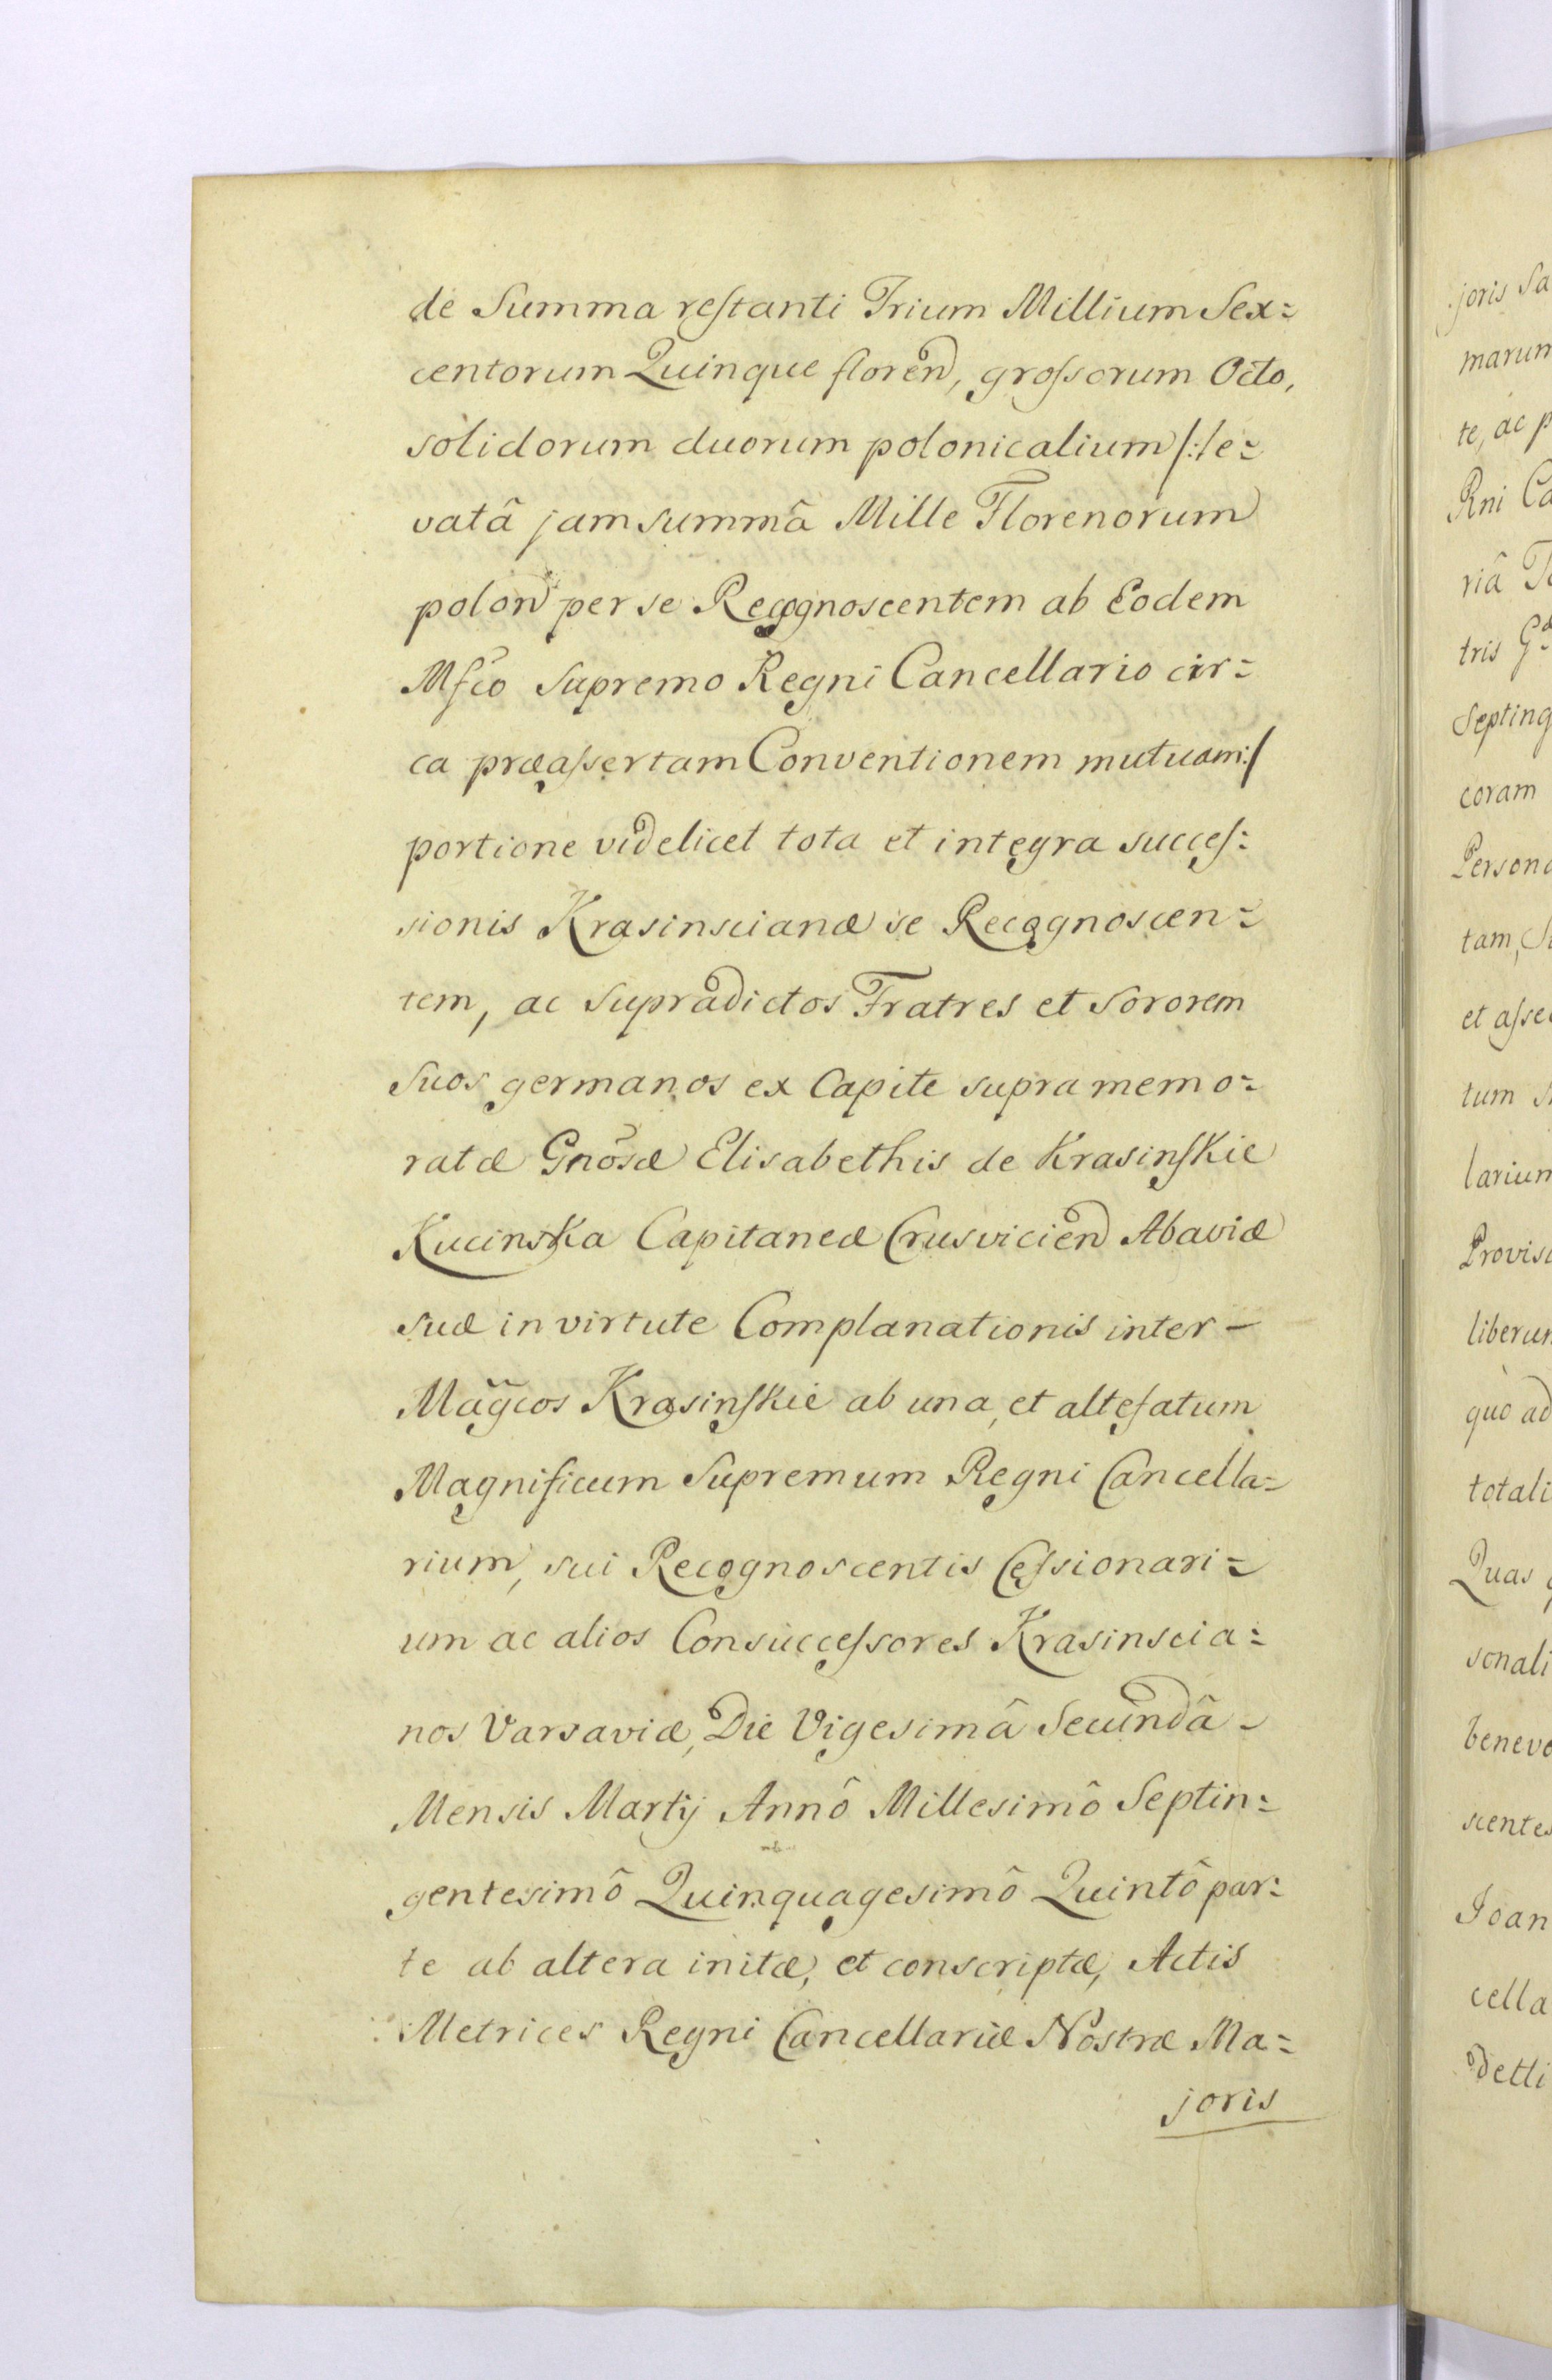 de Summa restanti Trium Millium Sex=
centorum Quinque floren̄, grossorum Octo,
solidorum duorum polonicalium /:le=
vatâ jam summâ Mille Florenorum
polon̄ per se Recognoscentem ab Eodem
Mfco Supremo Regni Cancellario cir=
ca præassertam Conventionem mutuam:/
portione videlicet tota et integra succes=
sionis Krasinscianæ se Recognoscen=
tem, ac supradictos Fratres et Sororem
suos germanos ex Capite supra memo=
ratæ Gnosæ Elisabethis de Krasinskie
Kucinska Capitaneæ Crusvicien̄ Abaviæ
suæ in virtute Complanationis inter -
Magcos Krasinskie ab una, et altefatum
Magnificum Supremum Regni Cancella=
rium, sui Recognoscentis Cessionari=
um ac alios Consuccessores Krasinscia=
nos Varsaviæ, Die Vigesimâ Secundâ -
Mensis Martij Annô Millesimô Septin=
gentesimô Quinquagesimô Quintô par=
te ab altera initæ, et conscriptæ, Actis
Metrices Regni Cancellariæ Nostræ Ma=
joris
joris Sa
marum
te, ac p
Rni Ca
riâ
tris
Septing
coram
Persona
tam,
et asse
tum
larium
Provis
liberum
quo ad
totali
Quas
sonali
benevo
scentes
Joan
cella